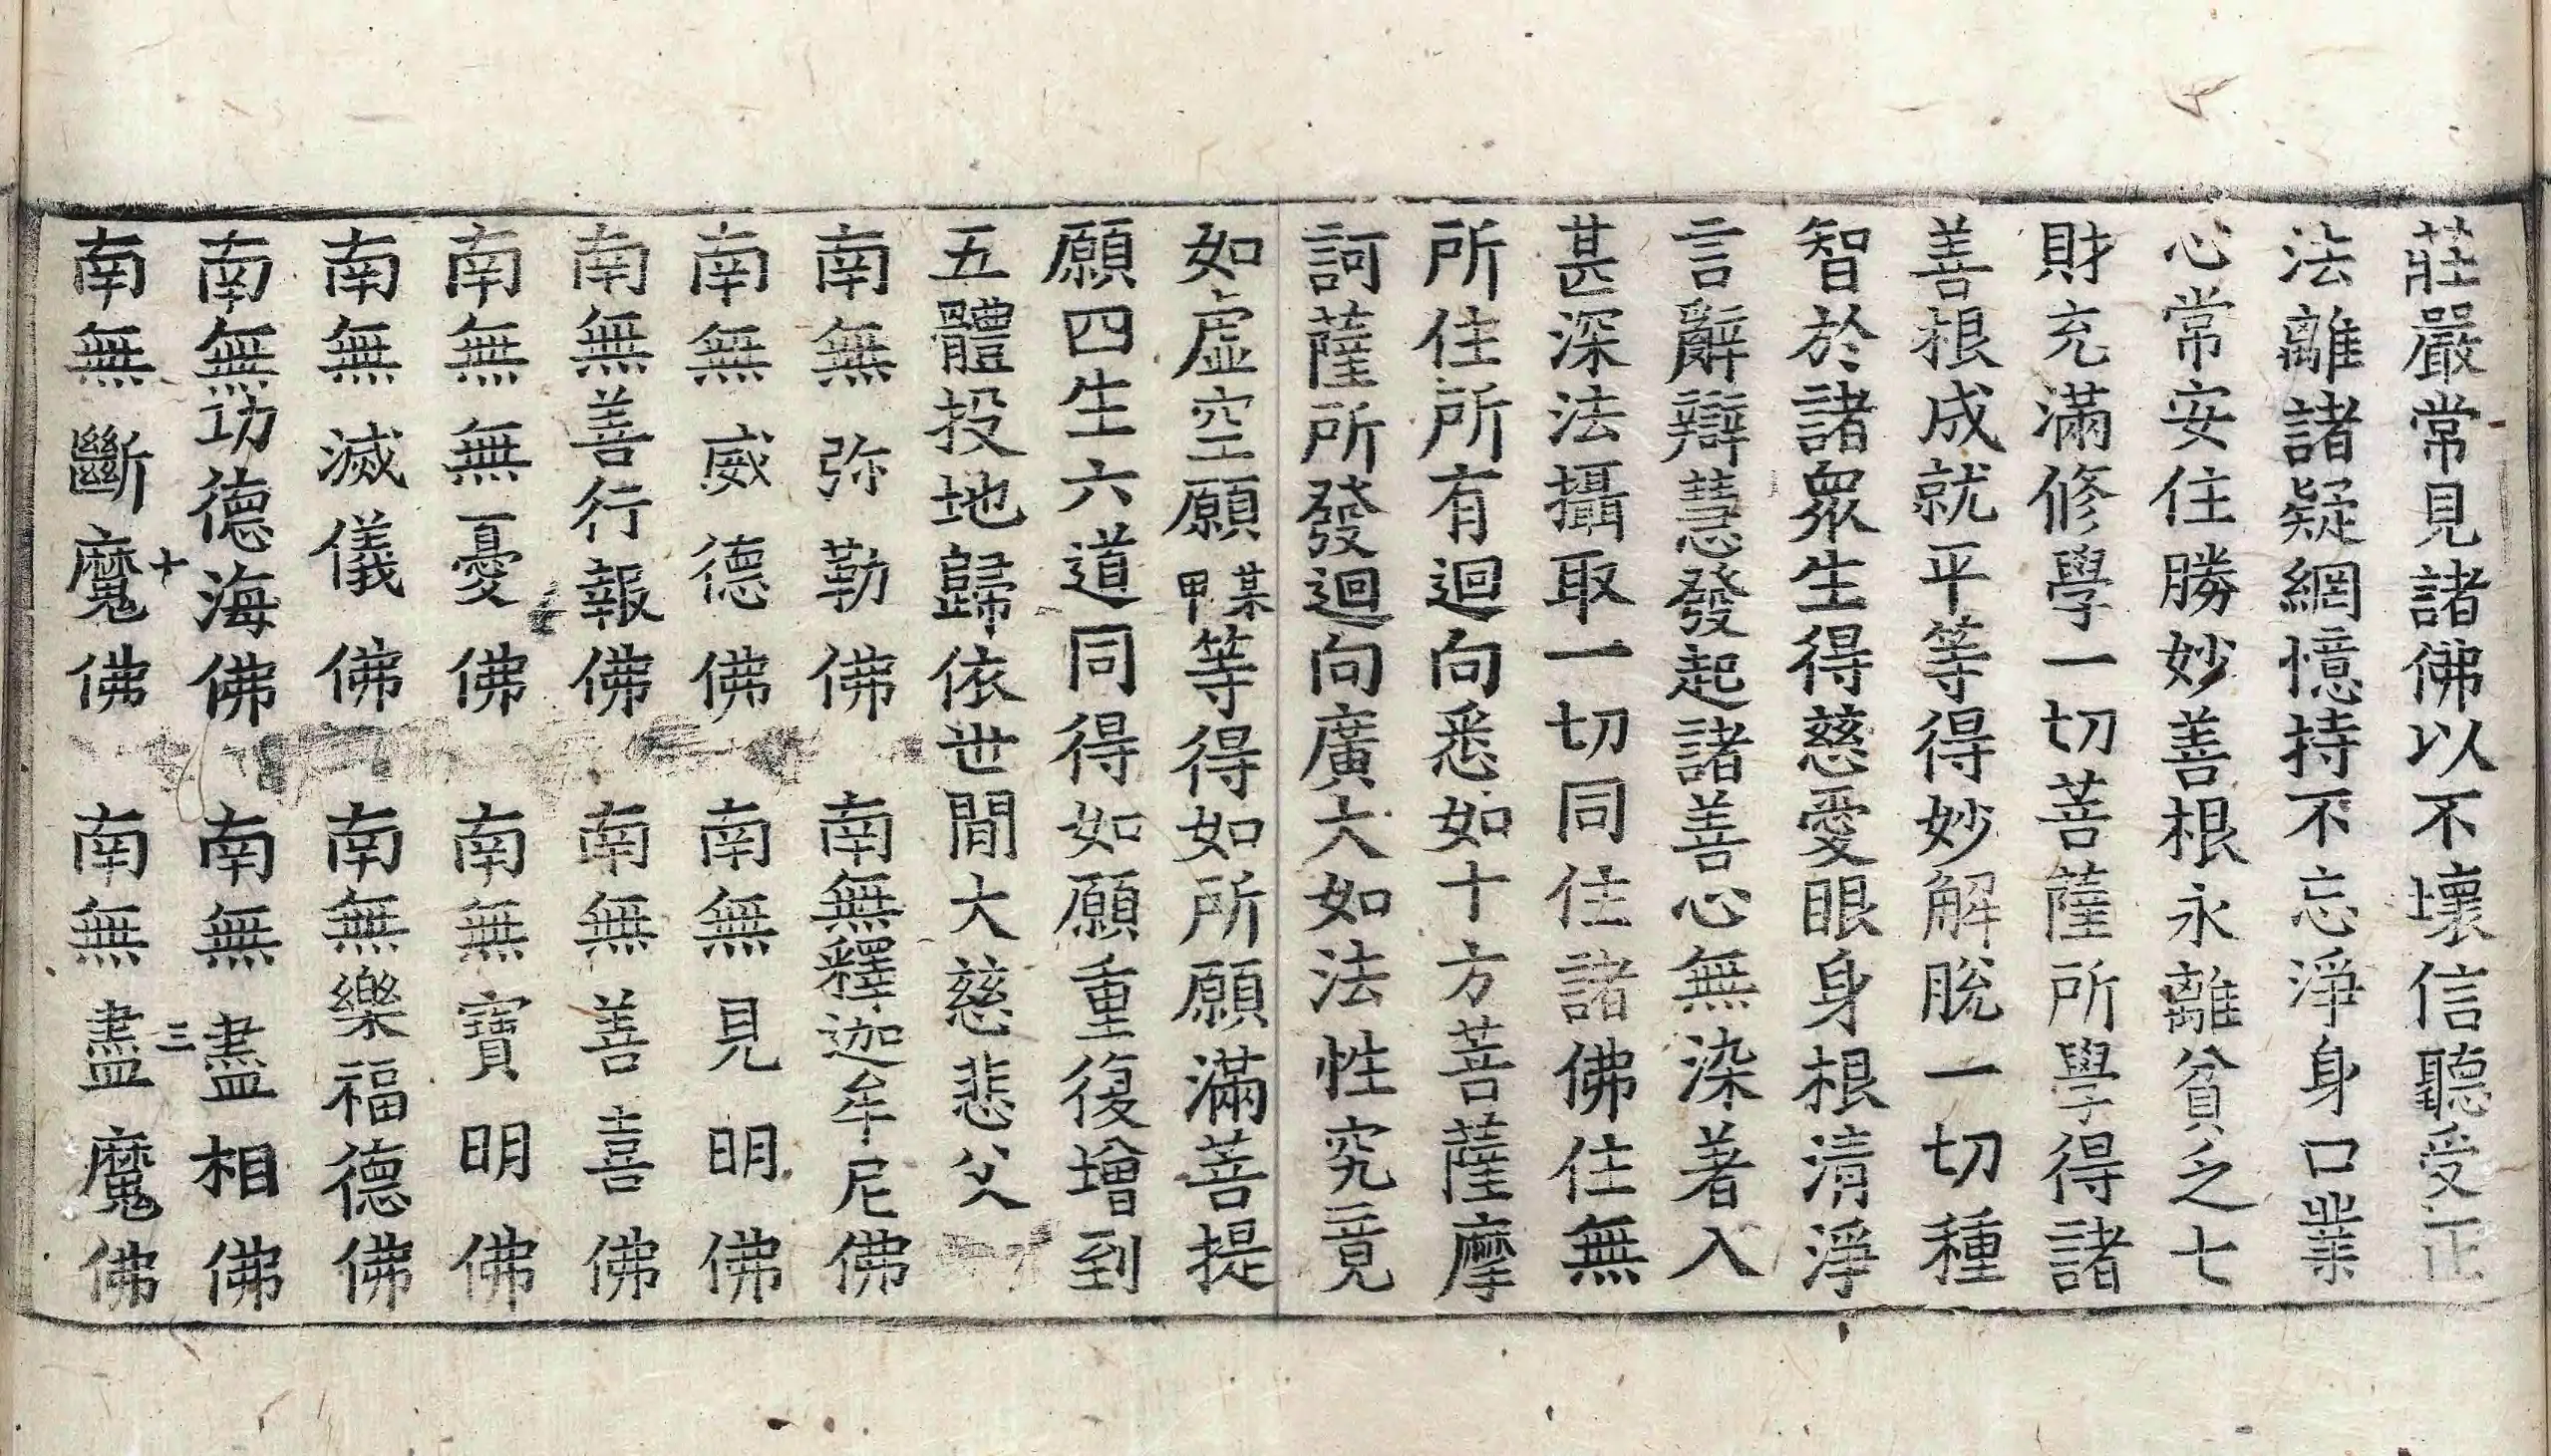 莊嚴常見諸佛以不壞信聽受正
法離諸疑網憶持不忘淨身口業
心常安住勝妙善根永離貧乏七
財充滿修學一切菩薩所學得諸
善根成就平等得妙解脫一切種
智於諸衆生得慈愛眼身根清淨
言辭辯慧發起諸善心無染著入
甚深法攝取一切同住諸佛住無
所住所有迴向悉如十方菩薩摩
訶薩所發迴向廣大如法性究竟
如虛空願某甲等得如所願滿菩提
願四生六道同得如願重復增到
五體投地歸依世間大慈悲父
南無弥勒佛 南無釋迦牟尼佛
南無威德佛 南無見明佛
南無善行報佛 南無善喜佛
南無無憂佛 南無寶明佛
南無滅儀佛 南無樂福德佛
南無功德海佛 南無盡相佛
十 三
南無斷魔佛 南無盡魔佛